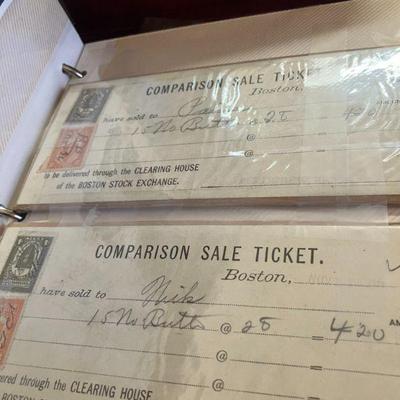 COMPARISON SALE TICKET.
Boston,
have sold to
15 No Butte @ 28 = 420
@ =
to be delivered through the CLEARING HOUSE @ =
of the BOSTON STOCK EXCHANGE.
COMPARISON SALE TICKET.
Boston,
have sold to Mik
15 No Butte @ 28 = 420 AM
@ =
@ =
ered through the CLEARING HOUSE @
BOSTON STOCK EXCHANGE.